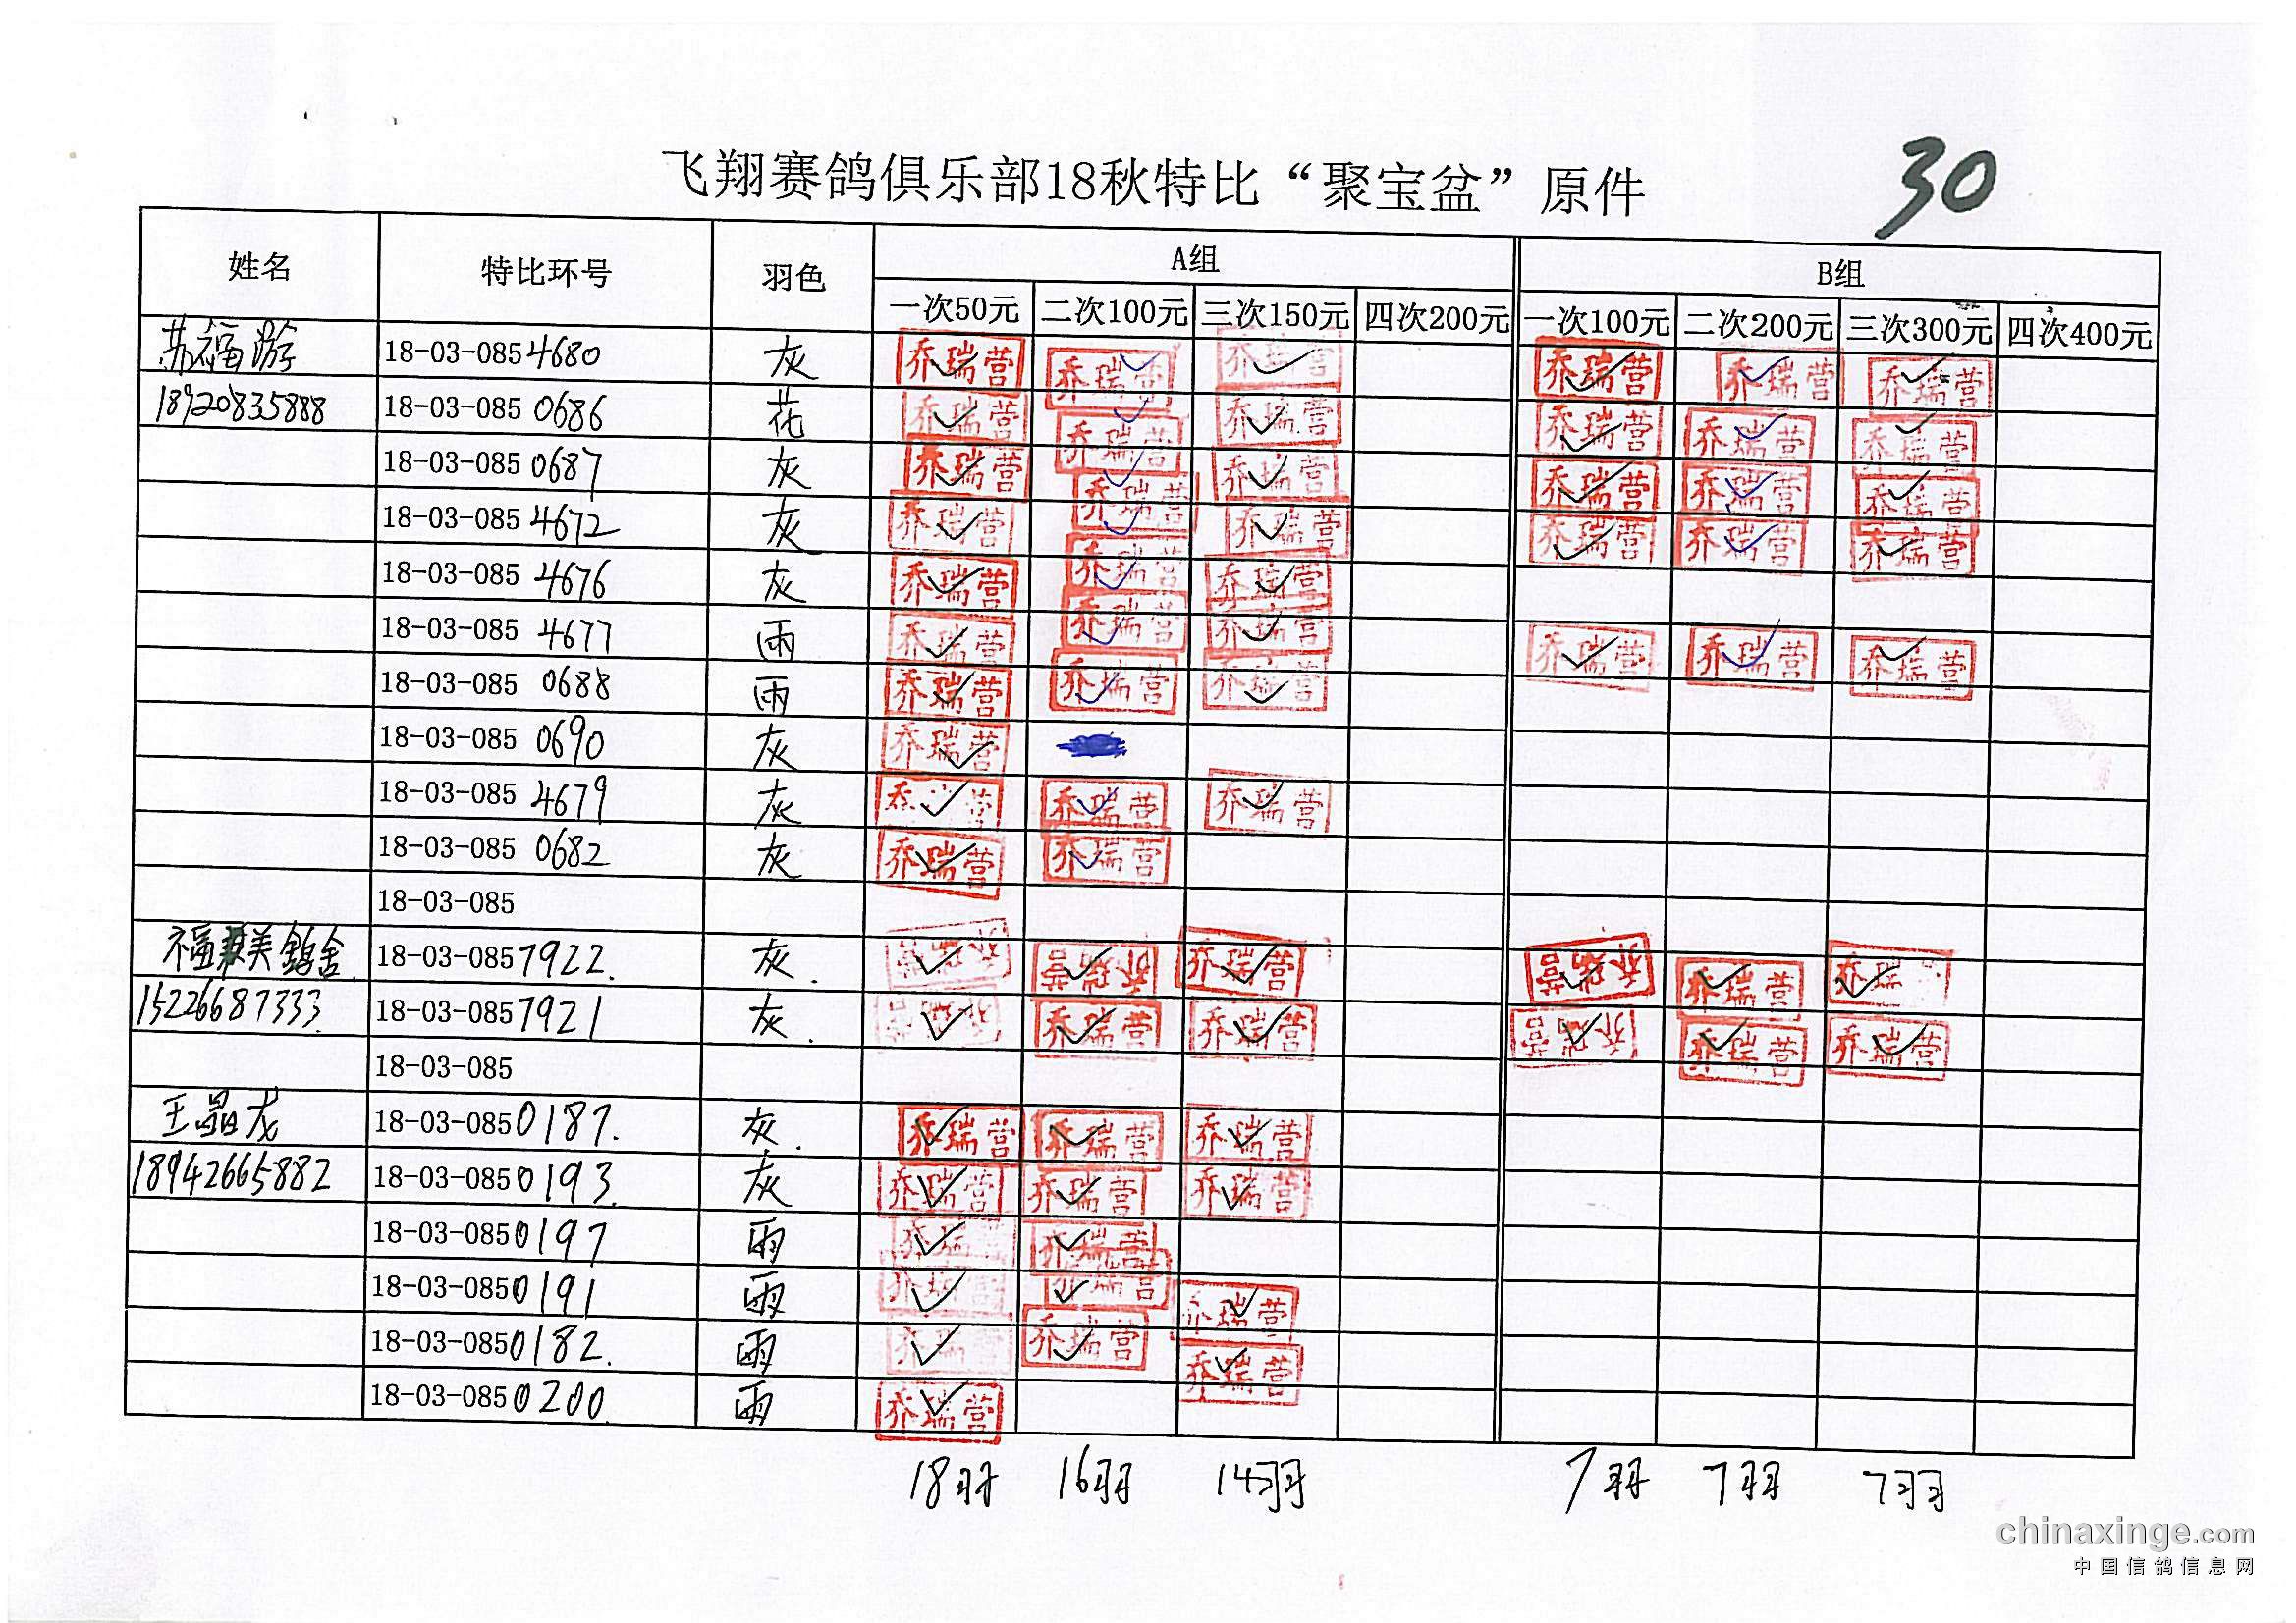 飞翔赛鸽俱乐部18秋特比“聚宝盆”原件 30
姓名 特比环号 羽色 A组 B组
一次50元 二次100元 三次150元 四次200元 一次100元 二次200元 三次300元 四次400元
苏福游 18-03-085 4680 灰 乔瑞营 乔瑞营 乔瑞营 乔瑞营 乔瑞营 乔瑞营
18920835888 18-03-085 0686 花 乔瑞营 乔瑞营 乔瑞营 乔瑞营 乔瑞营 乔瑞营
18-03-085 0687 灰 乔瑞营 乔瑞营 乔瑞营 乔瑞营 乔瑞营 乔瑞营
18-03-085 4672 灰 乔瑞营 乔瑞营 乔瑞营 乔瑞营 乔瑞营 乔瑞营
18-03-085 4676 灰 乔瑞营 乔瑞营 乔瑞营
18-03-085 4677 雨 乔瑞营 乔瑞营 乔瑞营 乔瑞营 乔瑞营 乔瑞营
18-03-085 0688 雨 乔瑞营 乔瑞营 乔瑞营
18-03-085 0690 灰 乔瑞营
18-03-085 4679 灰 乔瑞营 乔瑞营 乔瑞营
18-03-085 0682 灰 乔瑞营 乔瑞营
18-03-085
18-03-085 7922. 灰. 乔瑞营 乔瑞营 乔瑞营 乔瑞营 乔瑞营 乔瑞
15226687333. 18-03-085 7921 灰. 乔瑞营 乔瑞营 乔瑞营 乔瑞营 乔瑞营 乔瑞营
18-03-085
王晶龙 18-03-085 0187. 灰. 乔瑞营 乔瑞营 乔瑞营
18942665882 18-03-085 0193. 灰 乔瑞营 乔瑞营 乔瑞营
18-03-085 0197 雨 乔瑞营 乔瑞营
18-03-085 0191 雨 乔瑞营 乔瑞营 乔瑞营
18-03-085 0182. 雨 乔瑞营 乔瑞营 乔瑞营
18-03-085 0200. 雨 乔瑞营
18羽 16羽 14羽 7羽 7羽 7羽
chinaxinge.com
中国信鸽信息网